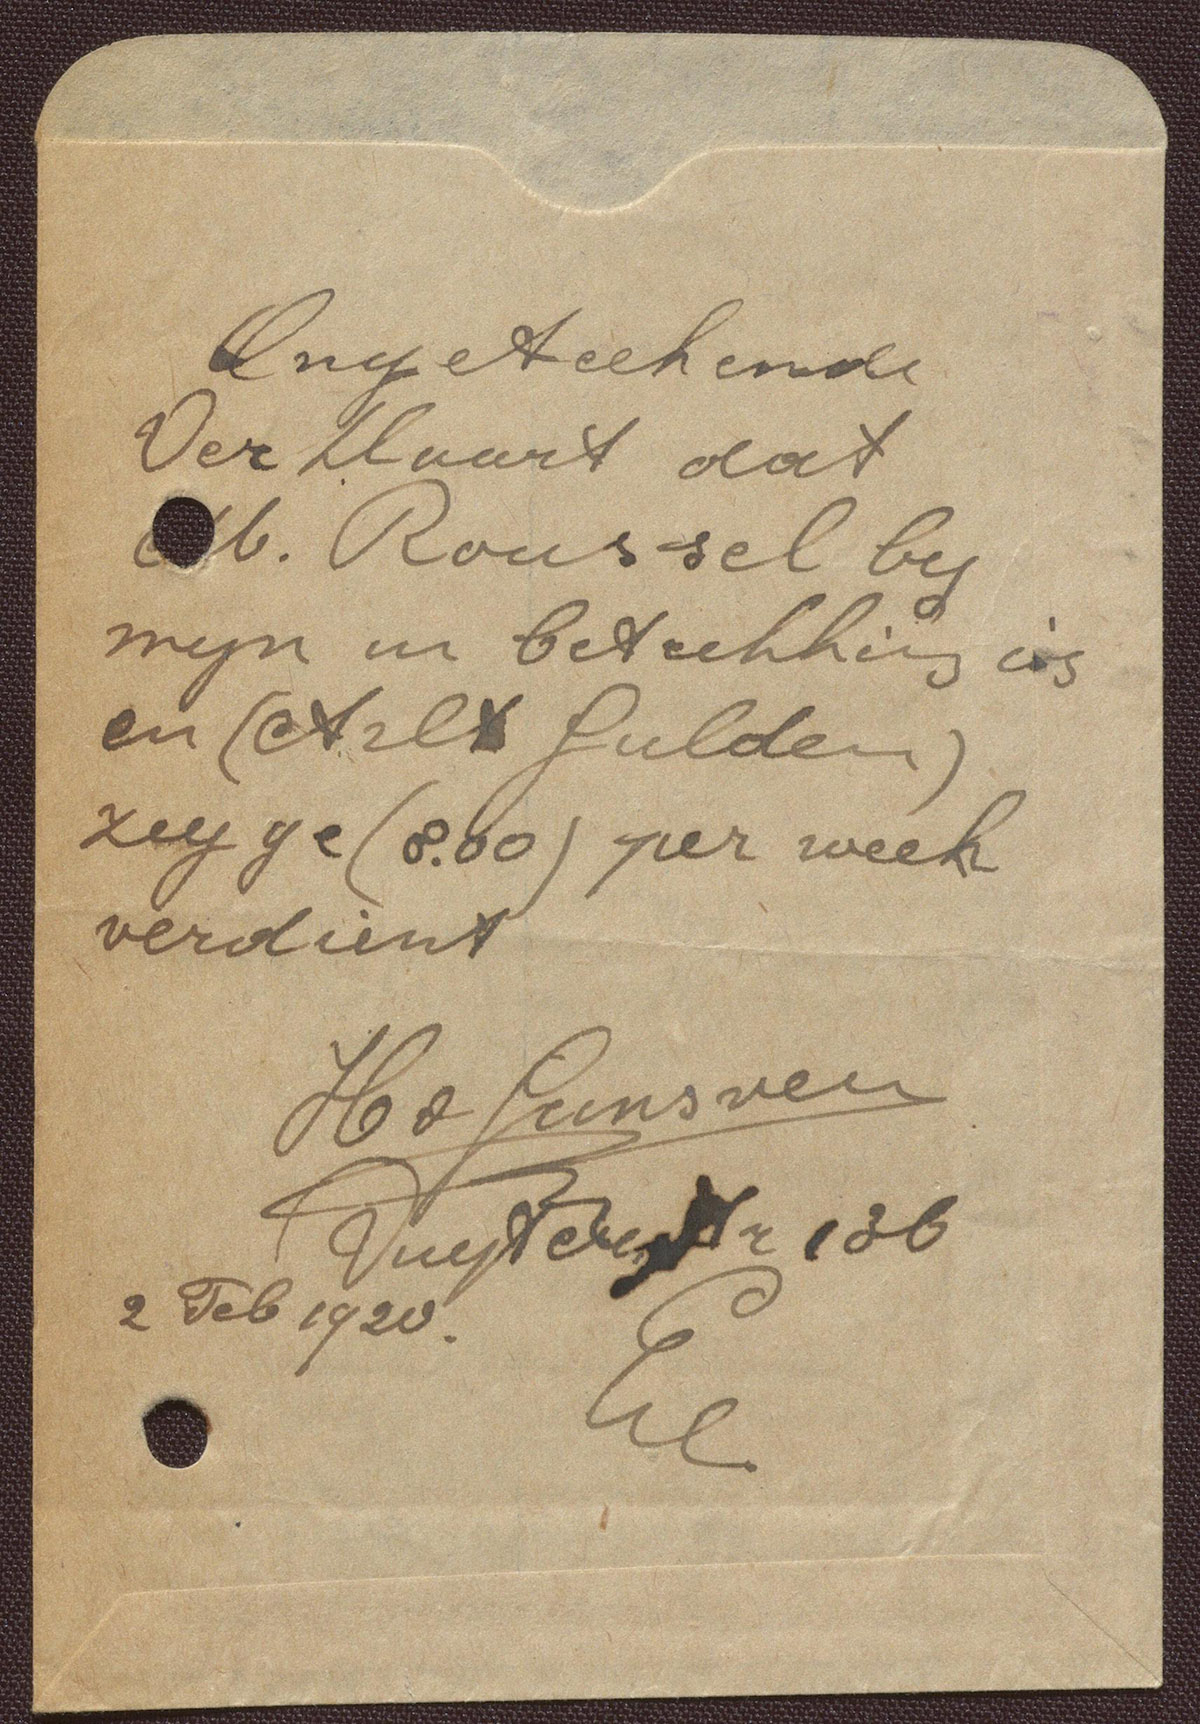 Ongeteekende
Verklaart dat
M. Roussel by
myn in betrekking is
en (Acht Gulden)
zegge (8.00) per week
verdient
H v Gansven
136
2 Feb 1920.